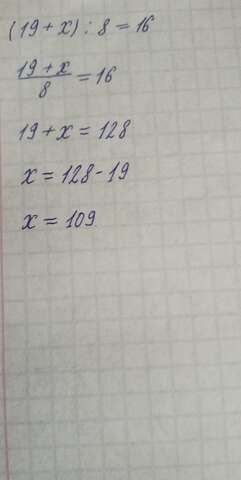 (19 + x) : 8 = 16
19 + x
8
= 16
19 + x = 128
x = 128 - 19
x = 109